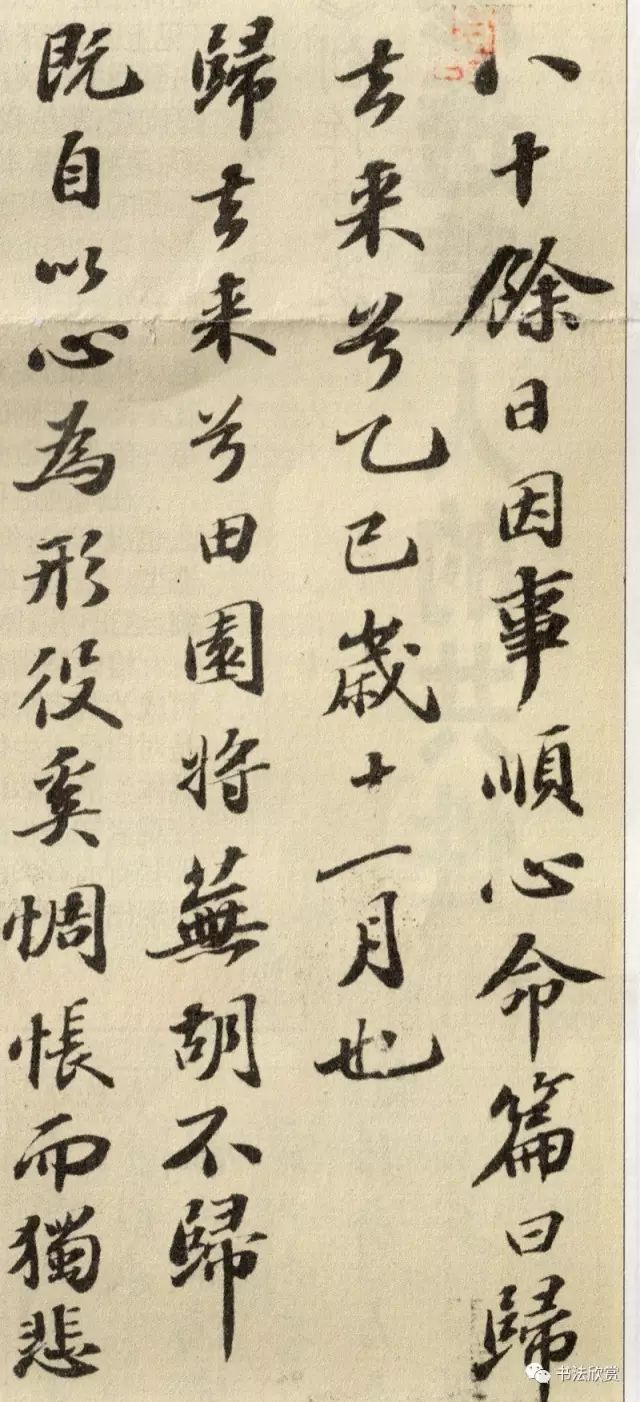 八十餘日因事順心命篇曰歸
去来兮乙巳歲十一月也
歸去来兮田園將蕪胡不歸
既自以心為形役奚惆悵而獨悲
书法欣赏